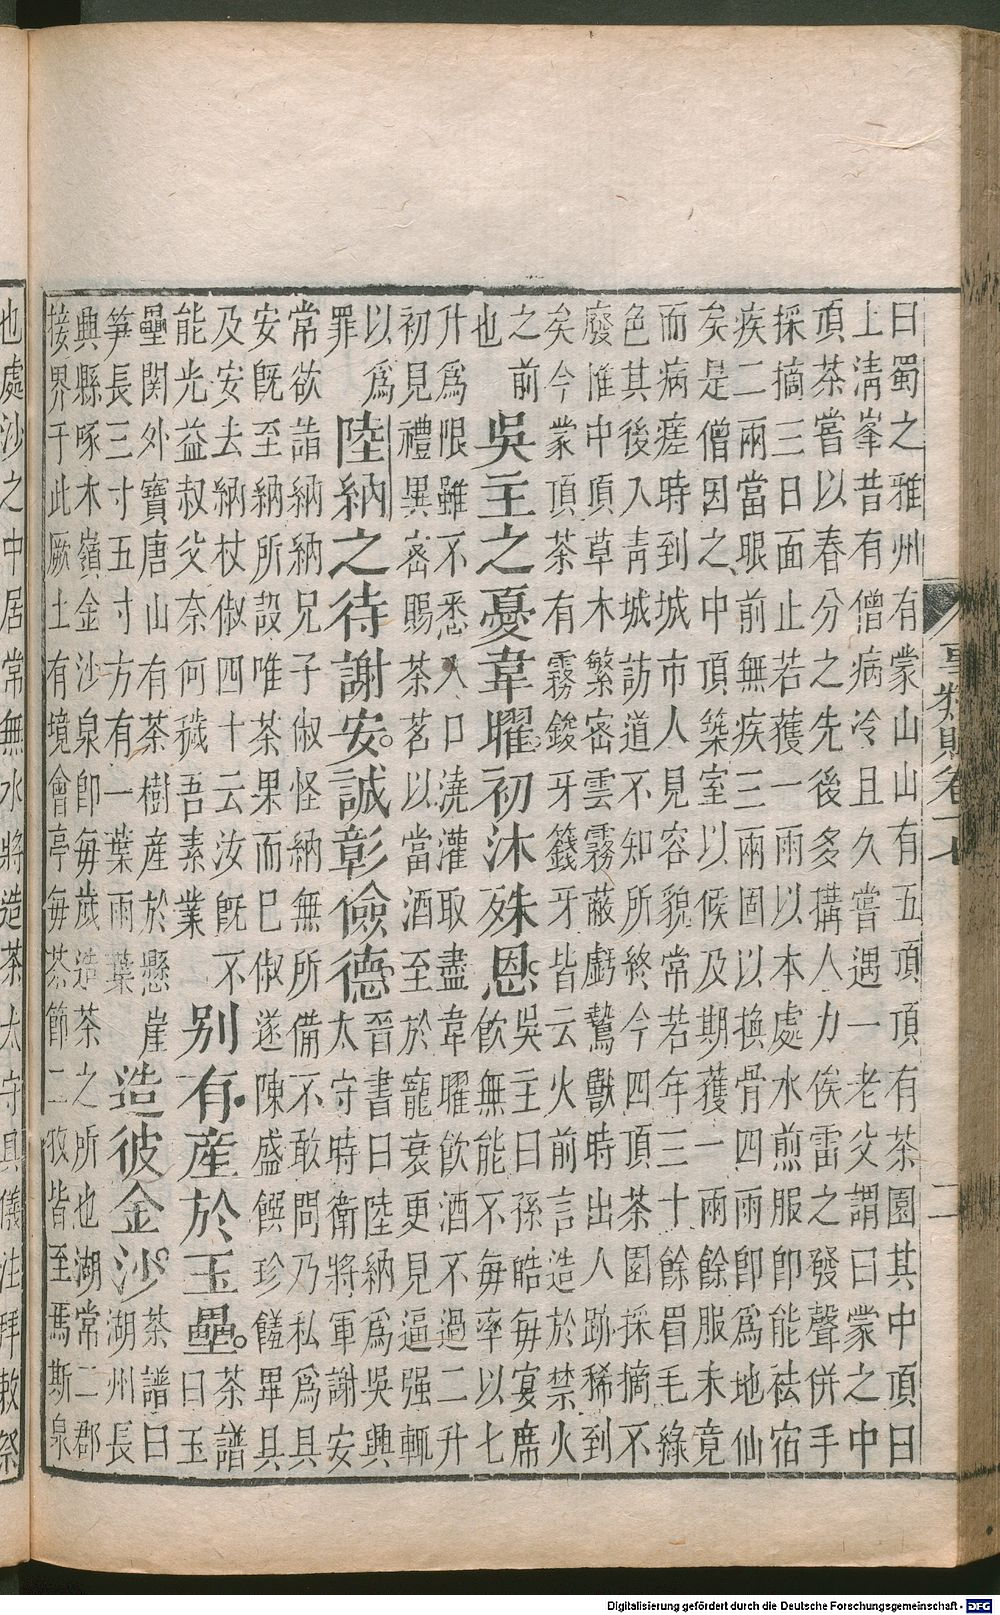 曰蜀之雅州有蒙山山有五頂頂有茶園其中頂曰
上淸峯昔有僧病冷且久嘗遇一老父謂曰蒙之中
頂茶嘗以春分之先後多搆人力俟雷之發聲併手
採摘三日面止若獲一兩以本處水煎服即能祛宿
疾二兩當眼前無疾三兩固以換骨四兩即爲地仙
矣是僧因之中頂築室以候及期獲一兩餘服未竟
而病瘥時到城市人見容貌常若年三十餘眉毛綠
色其後入青城訪道不知所終今四頂茶園採摘不
廢惟中頂草木繁密雲霧蔽虧鷙獸時出人跡稀到
矣今蒙頂茶有霧鋑牙籛牙皆云火前言造於禁火
之前
也
吳主之憂韋曜初沐殊恩
吳主曰孫皓每宴席
飲無能不每率以七
升爲限雖不悉入口澆灌取盡韋曜飲酒不過二升
初見禮異密賜茶茗以當酒至於寵衰更見逼强輒
以爲
罪
陸納之待謝安。誠彰儉德
晉書曰陸納爲吳興
太守時衛將軍謝安
常欲詣納納兄子俶怪納無所備不敢問乃私爲具
安既至納所設唯茶果而已俶遂陳盛饌珍饈畢具
及安去納杖俶四十云汝既不
能光益叔父奈何穢吾素業
别有產於玉壘。
茶譜
曰玉
壘関外寶唐山有茶樹産於懸崖
笋長三寸五寸方有一葉兩葉
造彼金沙
茶譜曰
湖州長
興縣啄木嶺金沙泉即每歲造茶之所也湖常二郡
接界于此厥土有境會亭每茶節二牧皆至焉斯泉
也處沙之中居常無水將造茶太守具儀注拜敕祭
事類賦卷十七
二
Digitalisierung gefördert durch die Deutsche Forschungsgemeinschaft - DFG